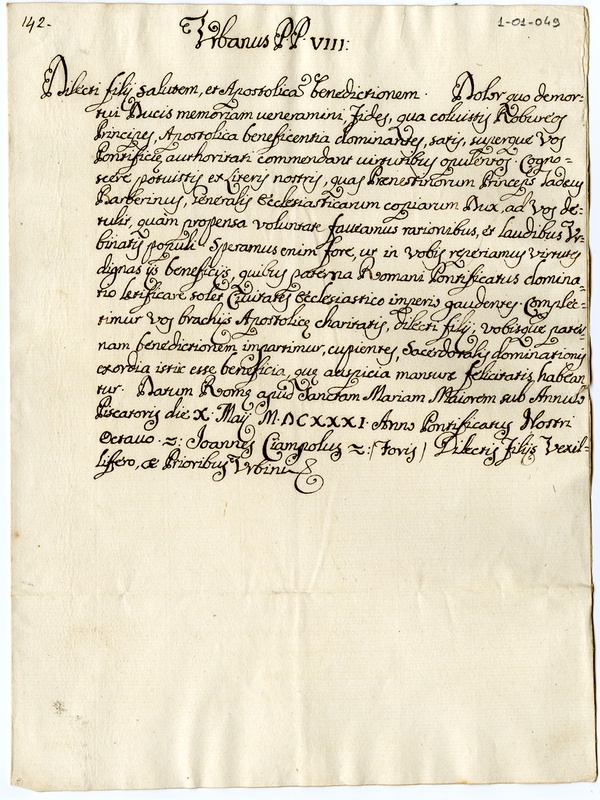 142-
1-01-049
Urbanus PP. VIII:
Dilecti filij salutem, et Apostolicã benedictionem. Dolor quo demor-
tui Ducis memoriam veneramini, fides, qua coluistis Robureos
Principes, Apostolica beneficentia dominantes, satis, superque Vos
Pontificie authoritati commendant virtutibus opulentos. Cogno=
scere potuistis ex literis nostris, quas Prenestinorum Princeps Tadeus
Barberinus, Generalis Ecclesiasticarum copiarum Dux, ad Vos de=
tulit, quam propensa voluntate faveamus rationibus, et laudibus Ur-
binatis populi. Speramus enim fore, ut in vobis reperiamus virtutes
dignas ijs beneficijs, quibus paterna Romani Pontificatus domina=
tio letificare solet Civitates Ecclesiastico imperio gaudentes. Complec=
timur Vos brachijs Apostolicę charitatis, dilecti filij, vobisque pater-
nam benedictionem impartimur, cupientes, Sacerdotalis dominationis
exordia istic esse beneficia, quę auspicia mansurę felicitatis habean
tur. Datum Romę apud Sanctam Mariam Maiorem sub Annulo
Piscatoris die X. Maij M.DCXXXI. Anno Pontificatus Nostri
Octavo =: Joannes Ciampolus =: (foris) Dilectis filijs Vexil=
lifero, æ Prioribus Urbini